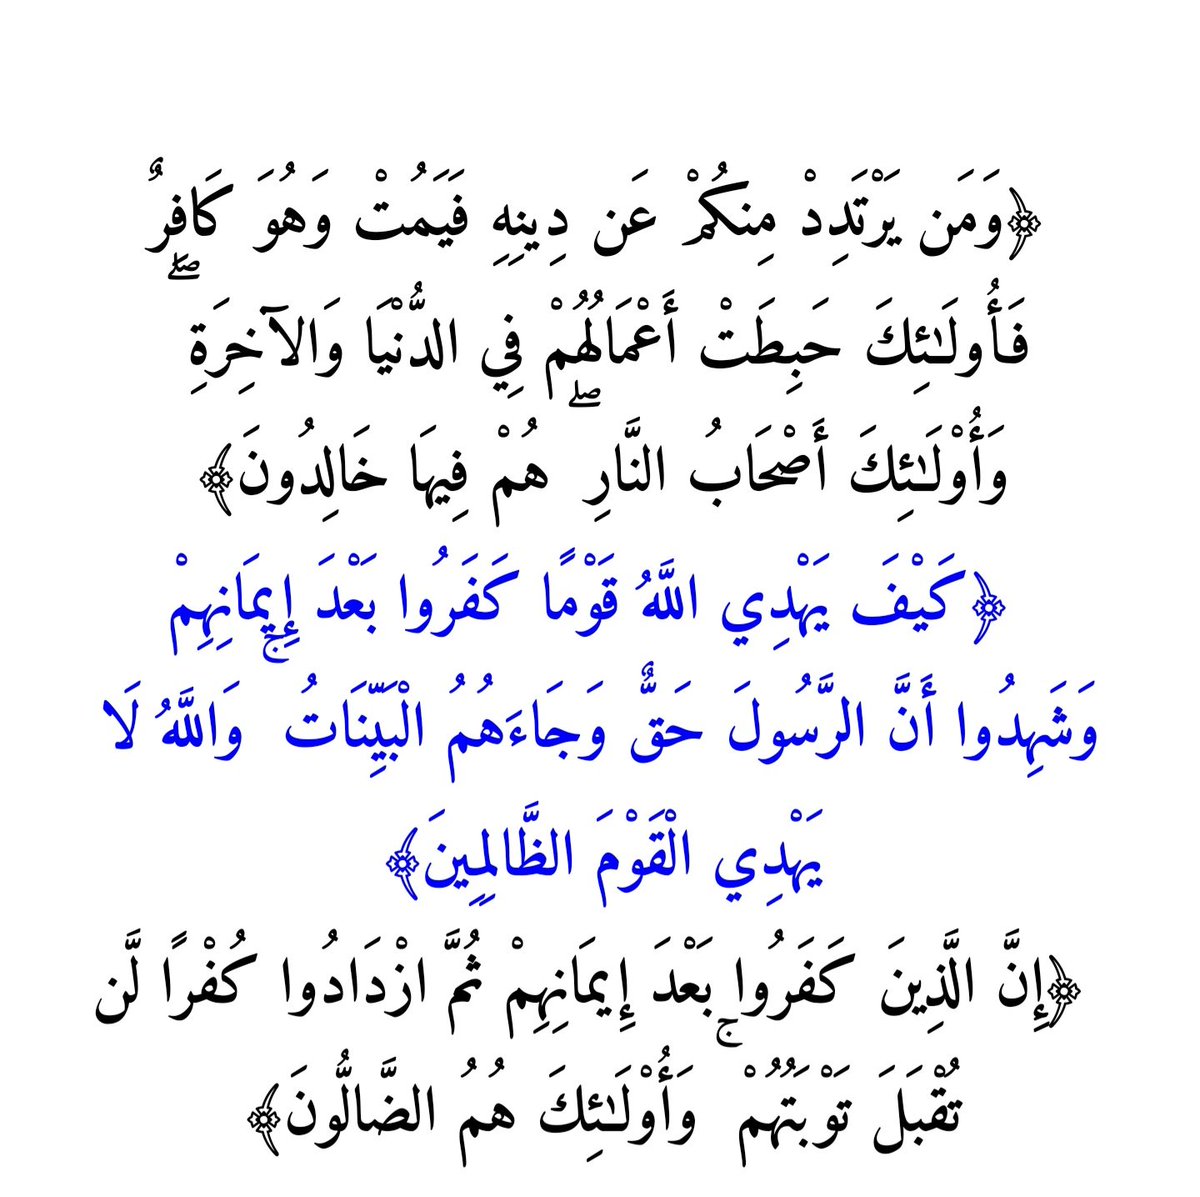 ﴿وَمَن يَرْتَدِدْ مِنكُمْ عَن دِينِهِ فَيَمُتْ وَهُوَ كَافِرٌ ۖ
فَأُولَـٰئِكَ حَبِطَتْ أَعْمَالُهُمْ فِي الدُّنْيَا وَالآخِرَةِ
وَأُوْلَـٰئِكَ أَصْحَابُ النَّارِ ۖ هُمْ فِيهَا خَالِدُونَ﴾
﴿كَيْفَ يَهْدِي اللَّهُ قَوْمًا كَفَرُوا بَعْدَ إِيمَانِهِمْ
وَشَهِدُوا أَنَّ الرَّسُولَ حَقٌّ وَجَاءَهُمُ الْبَيِّنَاتُ ۚ وَاللَّهُ لَا
يَهْدِي الْقَوْمَ الظَّالِمِينَ﴾
﴿إِنَّ الَّذِينَ كَفَرُوا بَعْدَ إِيمَانِهِمْ ثُمَّ ازْدَادُوا كُفْرًا لَّن
تُقْبَلَ تَوْبَتُهُمْ ۚ وَأُوْلَـٰئِكَ هُمُ الضَّالُّونَ﴾